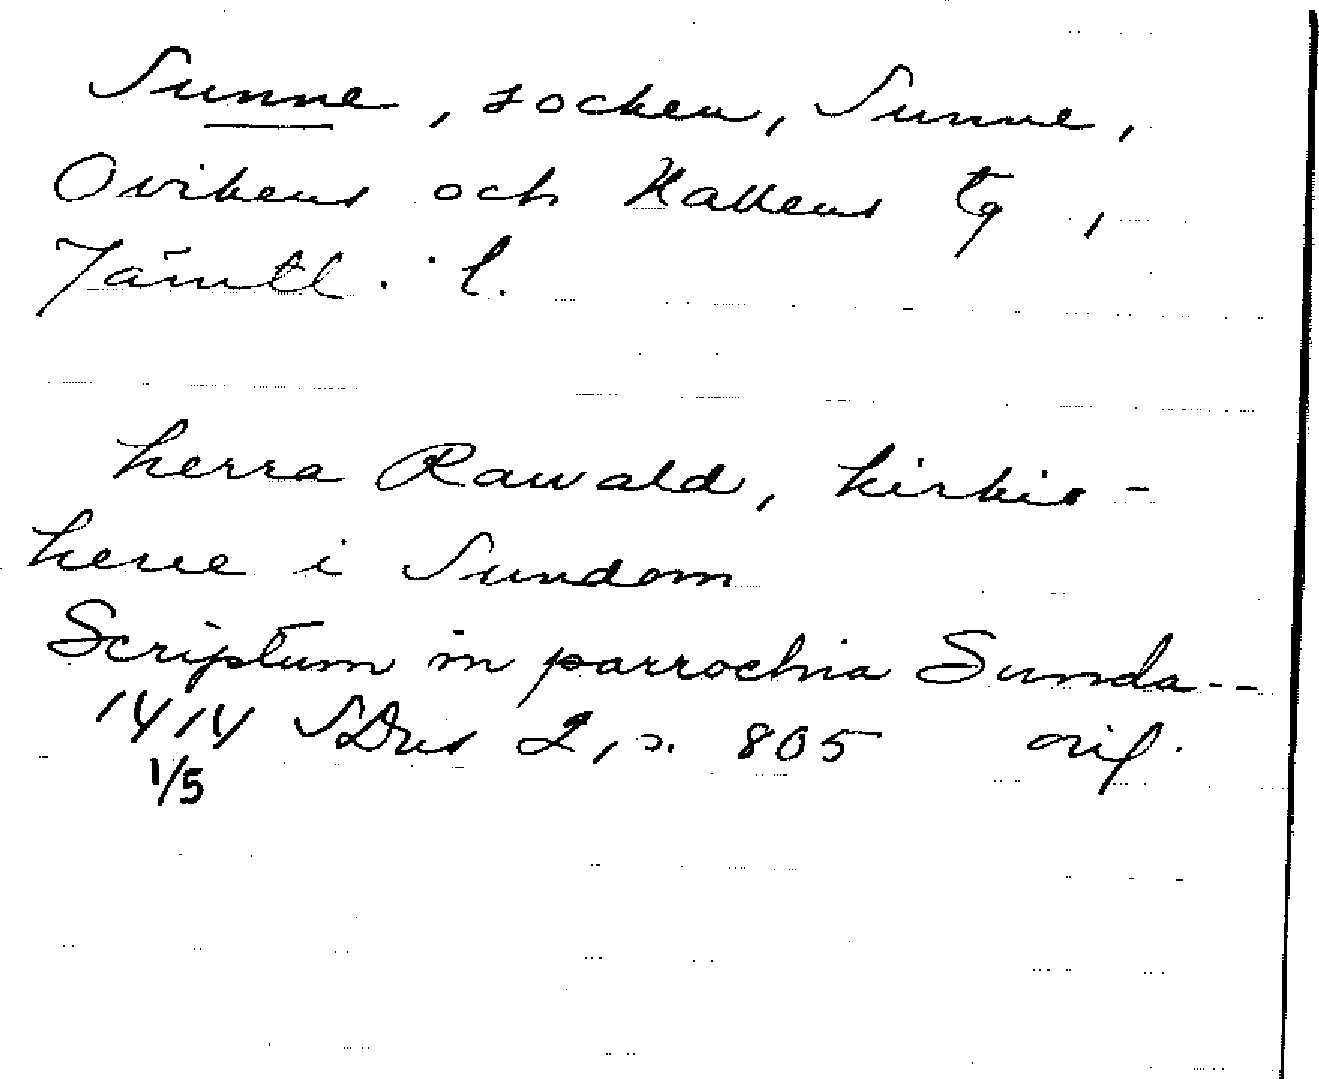 Sunne, socken, Sunne,
Ovikens och Hallens tg,
Jämtl. l.
herra Rawald, kirkio-
herre i Sundom
Scriptum in parrochia Sunda--
1414 SDns 2, s. 805 orig.
1/5